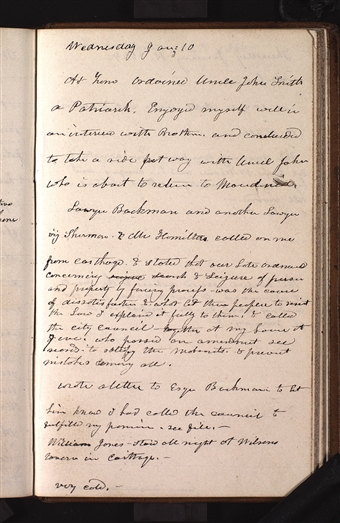 Wednesday Jany 10
At home ordained Uncle John Smith
a Patriarch. Enjoyed myself well in
an interview with Brethn. and concluded
to take a ride part way with Uncle John
who is about to return to Macedonia
Lawyer Backman and another Lawyer
viz Sherman. & Mr Hamilton called on me
from carthage. & stated that our late ordinance
concerning search & seizure of person
and property by foreign process was the cause
of dissatisfaction & 
the Law I explain it fully to them, & called
the city council together at my house at
7 eve. who passed an amendment see
record. to satisfy the 
mistakes 
wrote a letter to Esqr Backman to let
him know I had called the council &
fulfilld my promise. see file.—
William Jones staid all night at Wilsons
tavern in Carthage.—
very cold.—